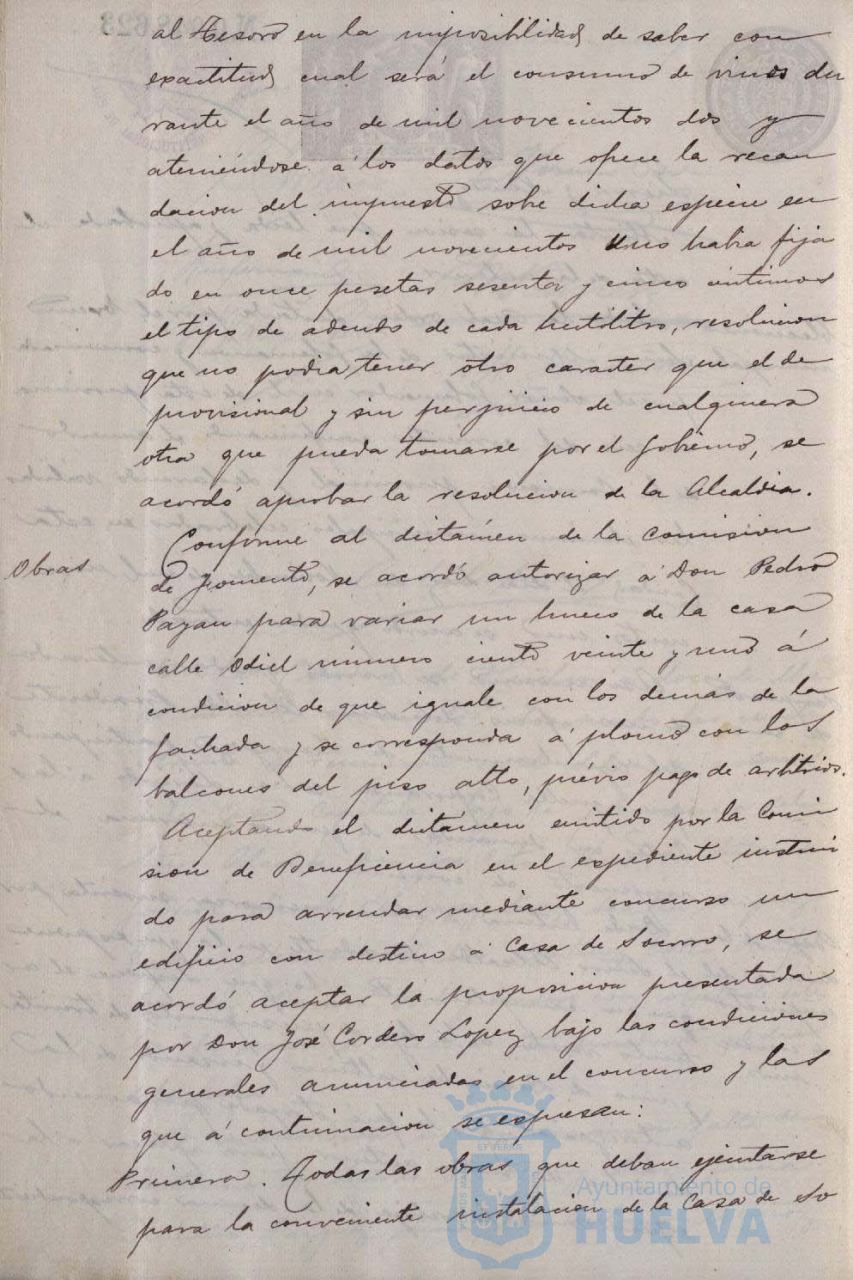 al Tesoro en la imposibilidad de saber con
exactitud cual será el consumo de vinos du
rante el año de mil novecientos dos y
ateniéndose á los datos que ofrece la recau
dacion del impuesto sobre dicha especie en
el año de mil novecientos uno habia fija
do en once pesetas sesenta y cinco céntimos
el tipo de adeudo de cada hectólitro, resolucion
que no podia tener otro caracter que el de
provisional y sin perjuicio de cualquiera
otra que pueda tomarse por el Gobierno, se
acordó aprobar la resolucion de la Alcaldia.
Obras
Conforme al dictámen de la comision
de Fomento, se acordó autorizar á Don Pedro
Payan para variar un hueco de la casa
calle Odiel número ciento veinte y uno á
condicion de que iguale con los demás de la
fachada y se corresponda á plomo con los
balcones del piso alto, prévio pago de arbitrios.
Aceptando el dictámen emitido por la Comi
sion de Beneficencia en el expediente instrui
do para arrendar mediante concurso un
edificio con destino á Casa de Socorro, se
acordó aceptar la proposicion presentada
por Don José Cordero Lopez bajo las condiciones
generales anunciadas en el concurso y las
que á continuacion se espresan:
Primera. Todas las obras que deban ejecutarse
para la conveniente instalacion de la Casa de So
Ayuntamiento de
HUELVA